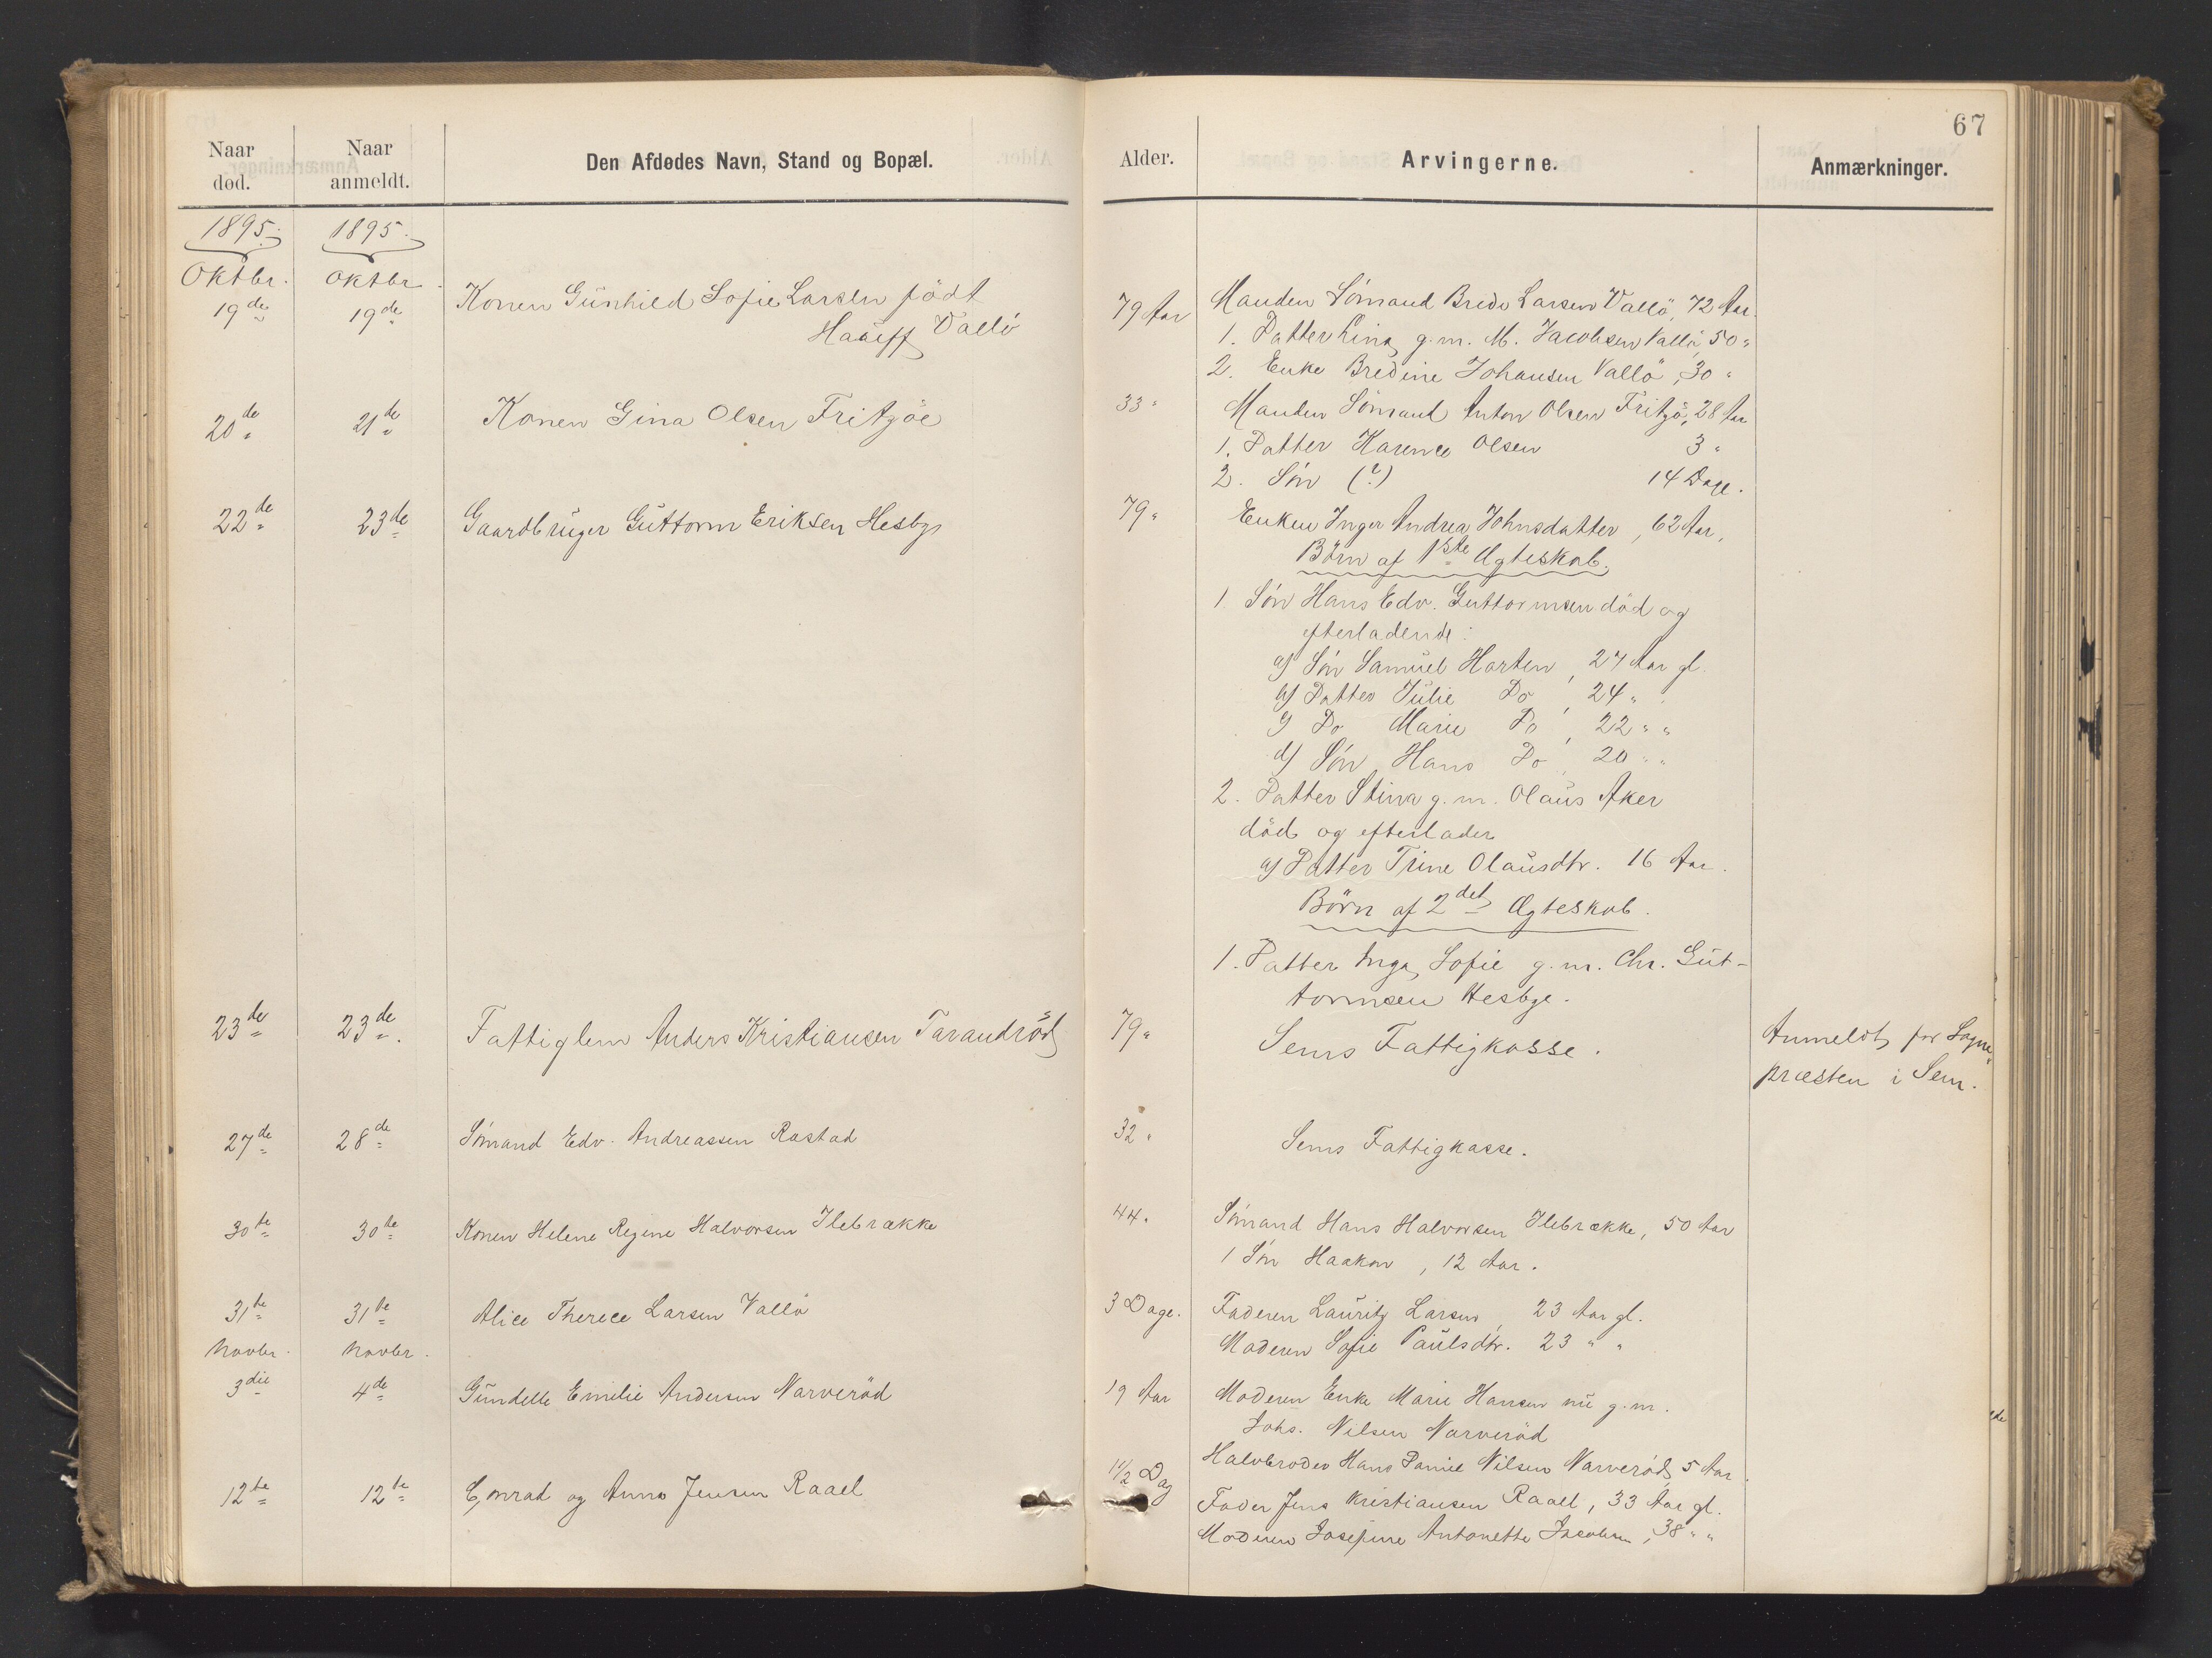 67
Naar død.
Naar anmeldt.
Den Afdødes Navn, Stand og Bopæl.
Alder.
Arvingerne.
Anmærkninger.
1895. 1895.
Oktbr. Oktbr.
19de 19de Konen Gunhild Sofie Larsen född
Haaeff Vallö
79 Aar
Manden Sömand Brede Larsen Vallö, 72 Aar.
1. Datter Lina g. m. M. Jacobsen Vallö 50 "
2. Enke Bredine Johansen Vallö, 30 "
20de 21de Konen Gina Olsen Fritzöe
33 "
Manden Sömand Anton Olsen Fritzö, 28 Aar
1. Datter Karence Olsen 3 "
2. Sön (?) 14 Dage.
22de 23de Gaardbruger Guttorm Eriksen Hesby
79 "
Enken Inger Andrea Johnsdatter, 62 Aar,
Börn af 1ste Ægteskab.
1 Sön Hans Edv. Guttormsen död og
efterladende:
a) Sön Samuel Horten, 27 Aar gl.
b) Datter Julie Do, 24 "
c) Do Marie Do, 22 " "
d) Sön Hans Do, 20 " "
2. Datter Stina g. m. Olaus Aker
död og efterlader
a) Datter Trine Olausdtr. 16 Aar.
Börn af 2det Ægteskab.
1. Datter Inga Sofie g. m. Chr. Gut-
tormsen Hesbye.
23de 23de. Fattiglem Anders Kristiansen Tarandröd
79 "
Sems Fattigkasse.
Anmeldt for Sogne-
præsten i Sem.
27de 28de Sömand Edv. Andreassen Rastad
32 "
Sems Fattigkasse.
30te 30te Konen Helene Regine Halvorsen Ilebrække
44 "
Sömand Hans Halvorsen Ilebrække, 50 Aar
1 Sön Haakon, 12 Aar.
31te 31te Alice Therece Larsen Vallö
3 Dage.
Faderen Lauritz Larsen, 23 Aar gl.
Moderen Sofie Paulsdtr. 23 " "
Novbr. Novbr.
3die 4de Gundelle Emilie Andersen Narveröd
19 Aar
Moderen Enke Marie Hansen nu g. m.
Johs. Nilsen Narveröd
Halvbroder Hans Daniel Nilsen Narveröd, 5 Aar.
12te 12te Conrad og Anna Jensen Raael
1 1/2 Dag
Fader Jens Kristiansen Raael, 33 Aar gl.
Moderen Josefine Antonette Jacobsen, 38 " "